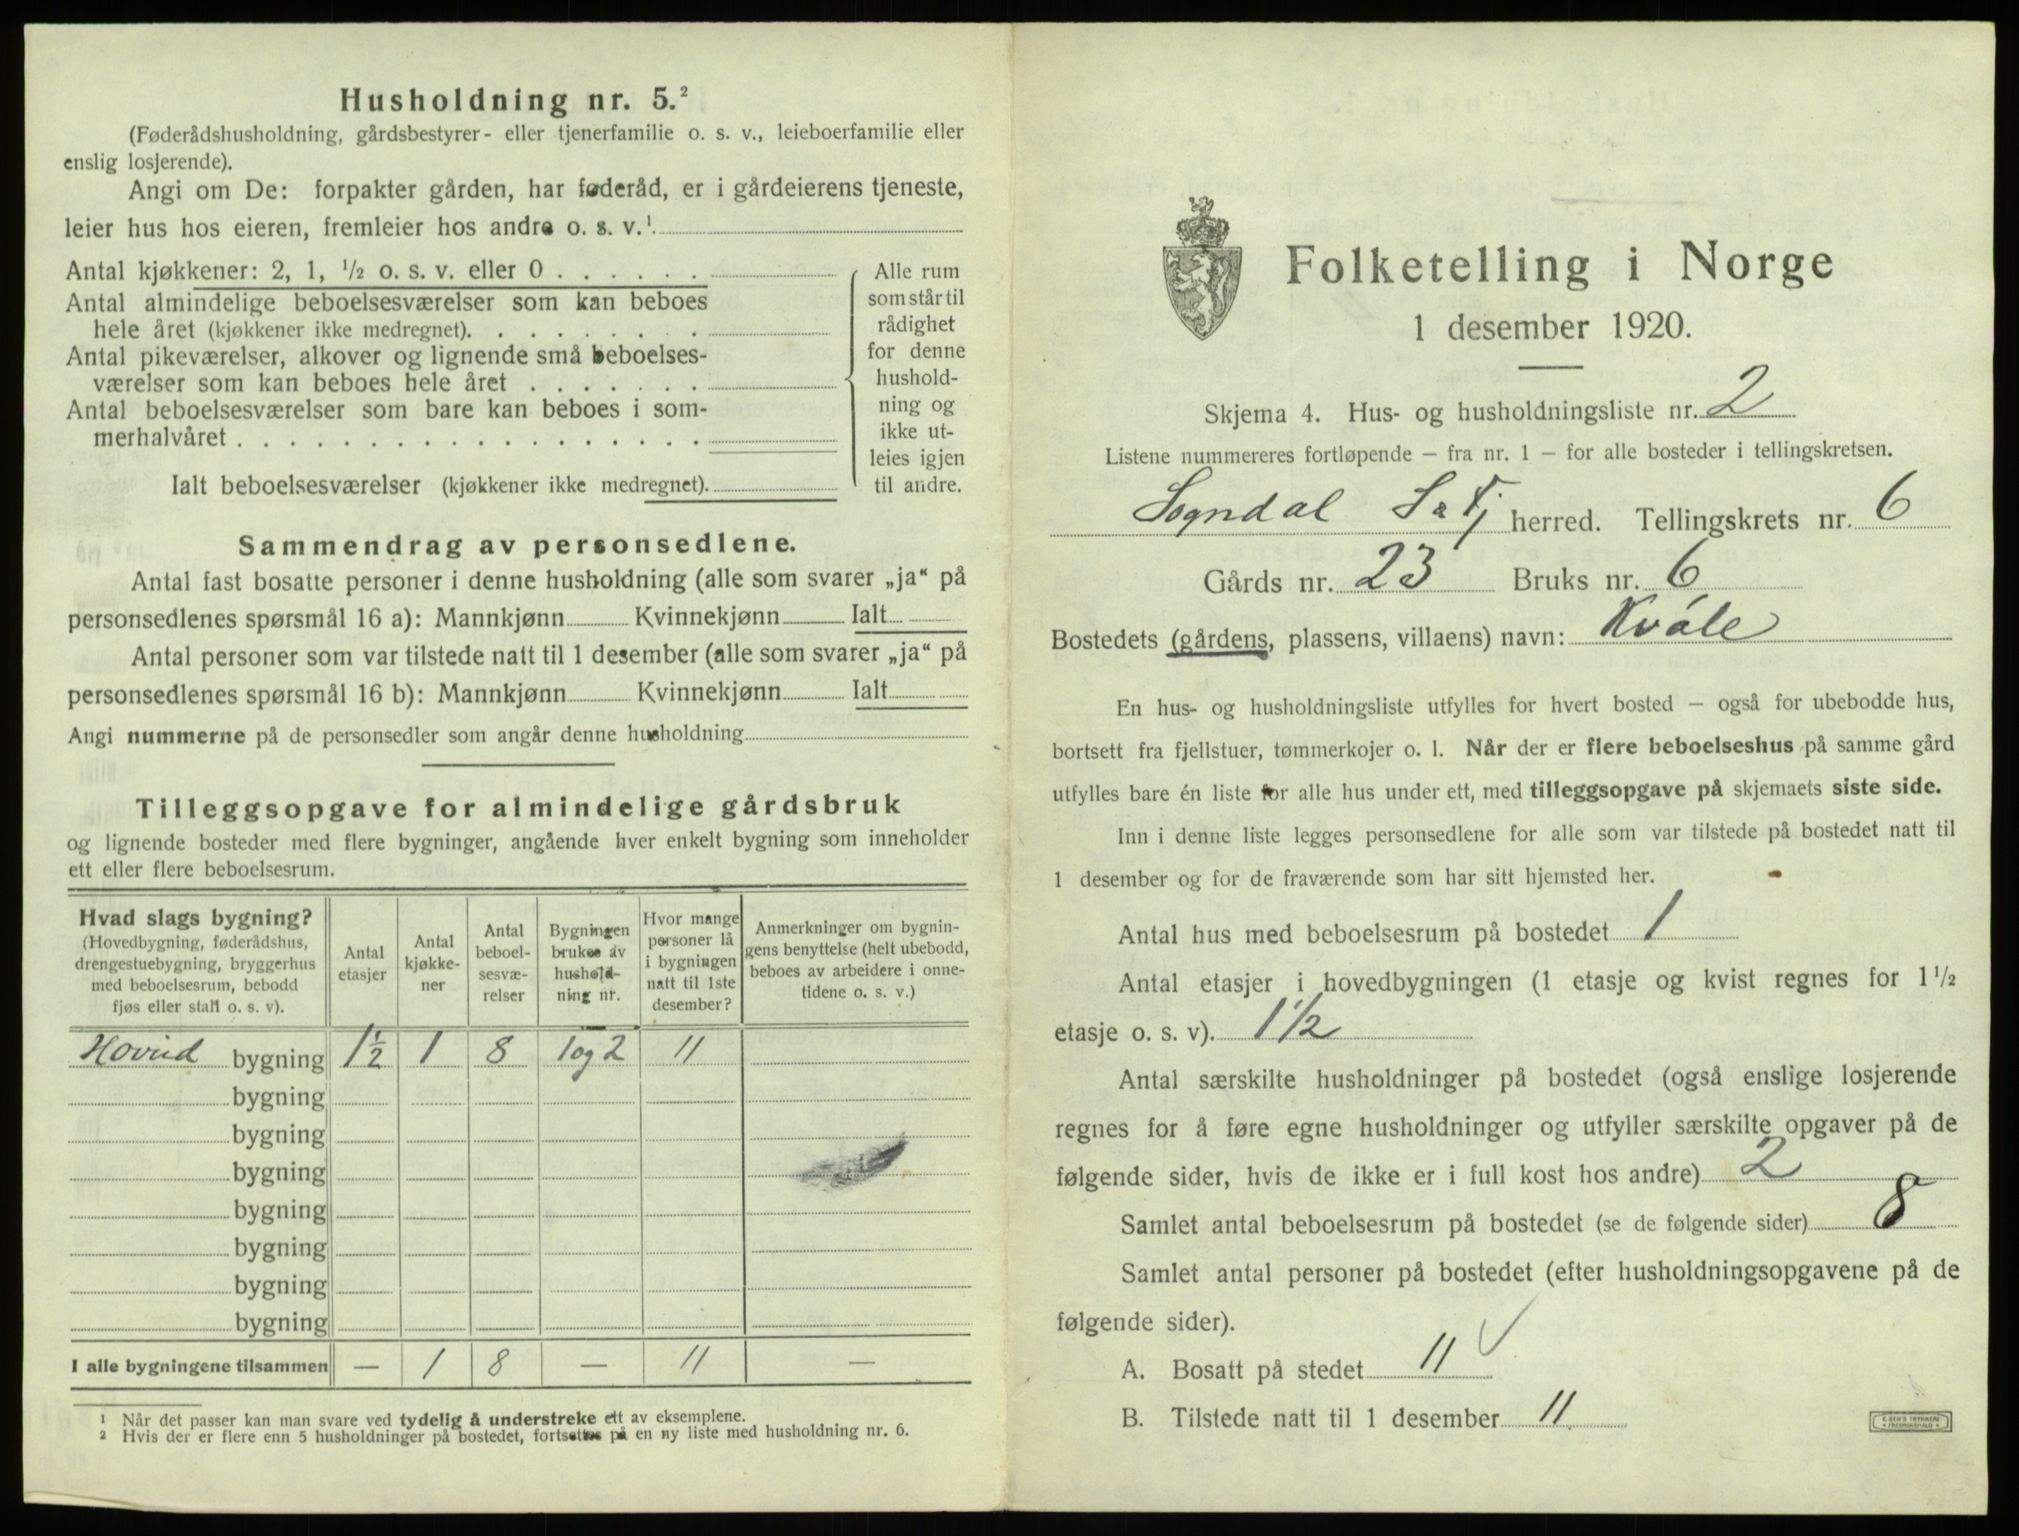 Husholdning nr. 5.²
(Føderådshusholdning, gårdsbestyrer- eller tjenerfamilie o. s. v., leieboerfamilie eller
enslig losjerende).
Angi om De: forpakter gården, har føderåd, er i gårdeierens tjeneste,
leier hus hos eieren, fremleier hos andre o. s. v.¹
Antal kjøkkener: 2, 1, ½ o. s. v. eller 0 . . . . . .
Antal almindelige beboelsesværelser som kan beboes
hele året (kjøkkener ikke medregnet). . . . . . . . .
Antal pikeværelser, alkover og lignende små beboelses-
værelser som kan beboes hele året . . . . . . .
Antal beboelsesværelser som bare kan beboes i som-
merhalvåret . . . . . . . . . . . . . . . . . .
Ialt beboelsesværelser (kjøkkener ikke medregnet).
Alle rum
som står til
rådighet
for denne
hushold-
ning og
ikke ut-
leies igjen
til andre.
Sammendrag av personsedlene.
Antal fast bosatte personer i denne husholdning (alle som svarer „ja“ på
personsedlenes spørsmål 16 a): Mannkjønn Kvinnekjønn Ialt
Antal personer som var tilstede natt til 1 desember (alle som svarer „ja“ på
personsedlenes spørsmål 16 b): Mannkjønn Kvinnekjønn Ialt
Angi nummerne på de personsedler som angår denne husholdning
Tilleggsopgave for almindelige gårdsbruk
og lignende bosteder med flere bygninger, angående hver enkelt bygning som inneholder
ett eller flere beboelsesrum.
Hvad slags bygning?
(Hovedbygning, føderådshus,
drengestuebygning, bryggerhus
med beboelsesrum, bebodd
fjøs eller stall o. s. v).
Antal
etasjer
Antal
kjøkke-
ner
Antal
beboel-
sesvæ-
relser
Bygningen
brukes av
hushold-
ning nr.
Hvor mange
personer lå
i bygningen
natt til 1ste
desember?
Anmerkninger om bygnin-
gens benyttelse (helt ubebodd,
beboes av arbeidere i onne-
tidene o. s. v.)
Hoved bygning 1½ 1 8 1 og 2 11
bygning
bygning
bygning
bygning
bygning
bygning
bygning
I alle bygningene tilsammen — 1 8 — 11 —
1 Når det passer kan man svare ved tydelig å understreke ett av eksemplene.
2 Hvis der er flere enn 5 husholdninger på bostedet, fortsettes på en ny liste med husholdning nr. 6.
Folketelling i Norge
1 desember 1920.
Skjema 4. Hus- og husholdningsliste nr. 2
Listene nummereres fortløpende – fra nr. 1 – for alle bosteder i tellingskretsen.
Sogndal S. & Fj herred. Tellingskrets nr. 6
Gårds nr. 23 Bruks nr. 6
Bostedets (gårdens, plassens, villaens) navn: Kvåle
En hus- og husholdningsliste utfylles for hvert bosted – også for ubebodde hus,
bortsett fra fjellstuer, tømmerkojer o. l. Når der er flere beboelseshus på samme gård
utfylles bare én liste for alle hus under ett, med tilleggsopgave på skjemaets siste side.
Inn i denne liste legges personsedlene for alle som var tilstede på bostedet natt til
1 desember og for de fraværende som har sitt hjemsted her.
Antal hus med beboelsesrum på bostedet 1
Antal etasjer i hovedbygningen (1 etasje og kvist regnes for 1½
etasje o. s. v). 1½
Antal særskilte husholdninger på bostedet (også enslige losjerende
regnes for å føre egne husholdninger og utfyller særskilte opgaver på de
følgende sider, hvis de ikke er i full kost hos andre) 2
Samlet antal beboelsesrum på bostedet (se de følgende sider) 8
Samlet antal personer på bostedet (efter husholdningsopgavene på de
følgende sider).
A. Bosatt på stedet 11 ✓
B. Tilstede natt til 1 desember 11